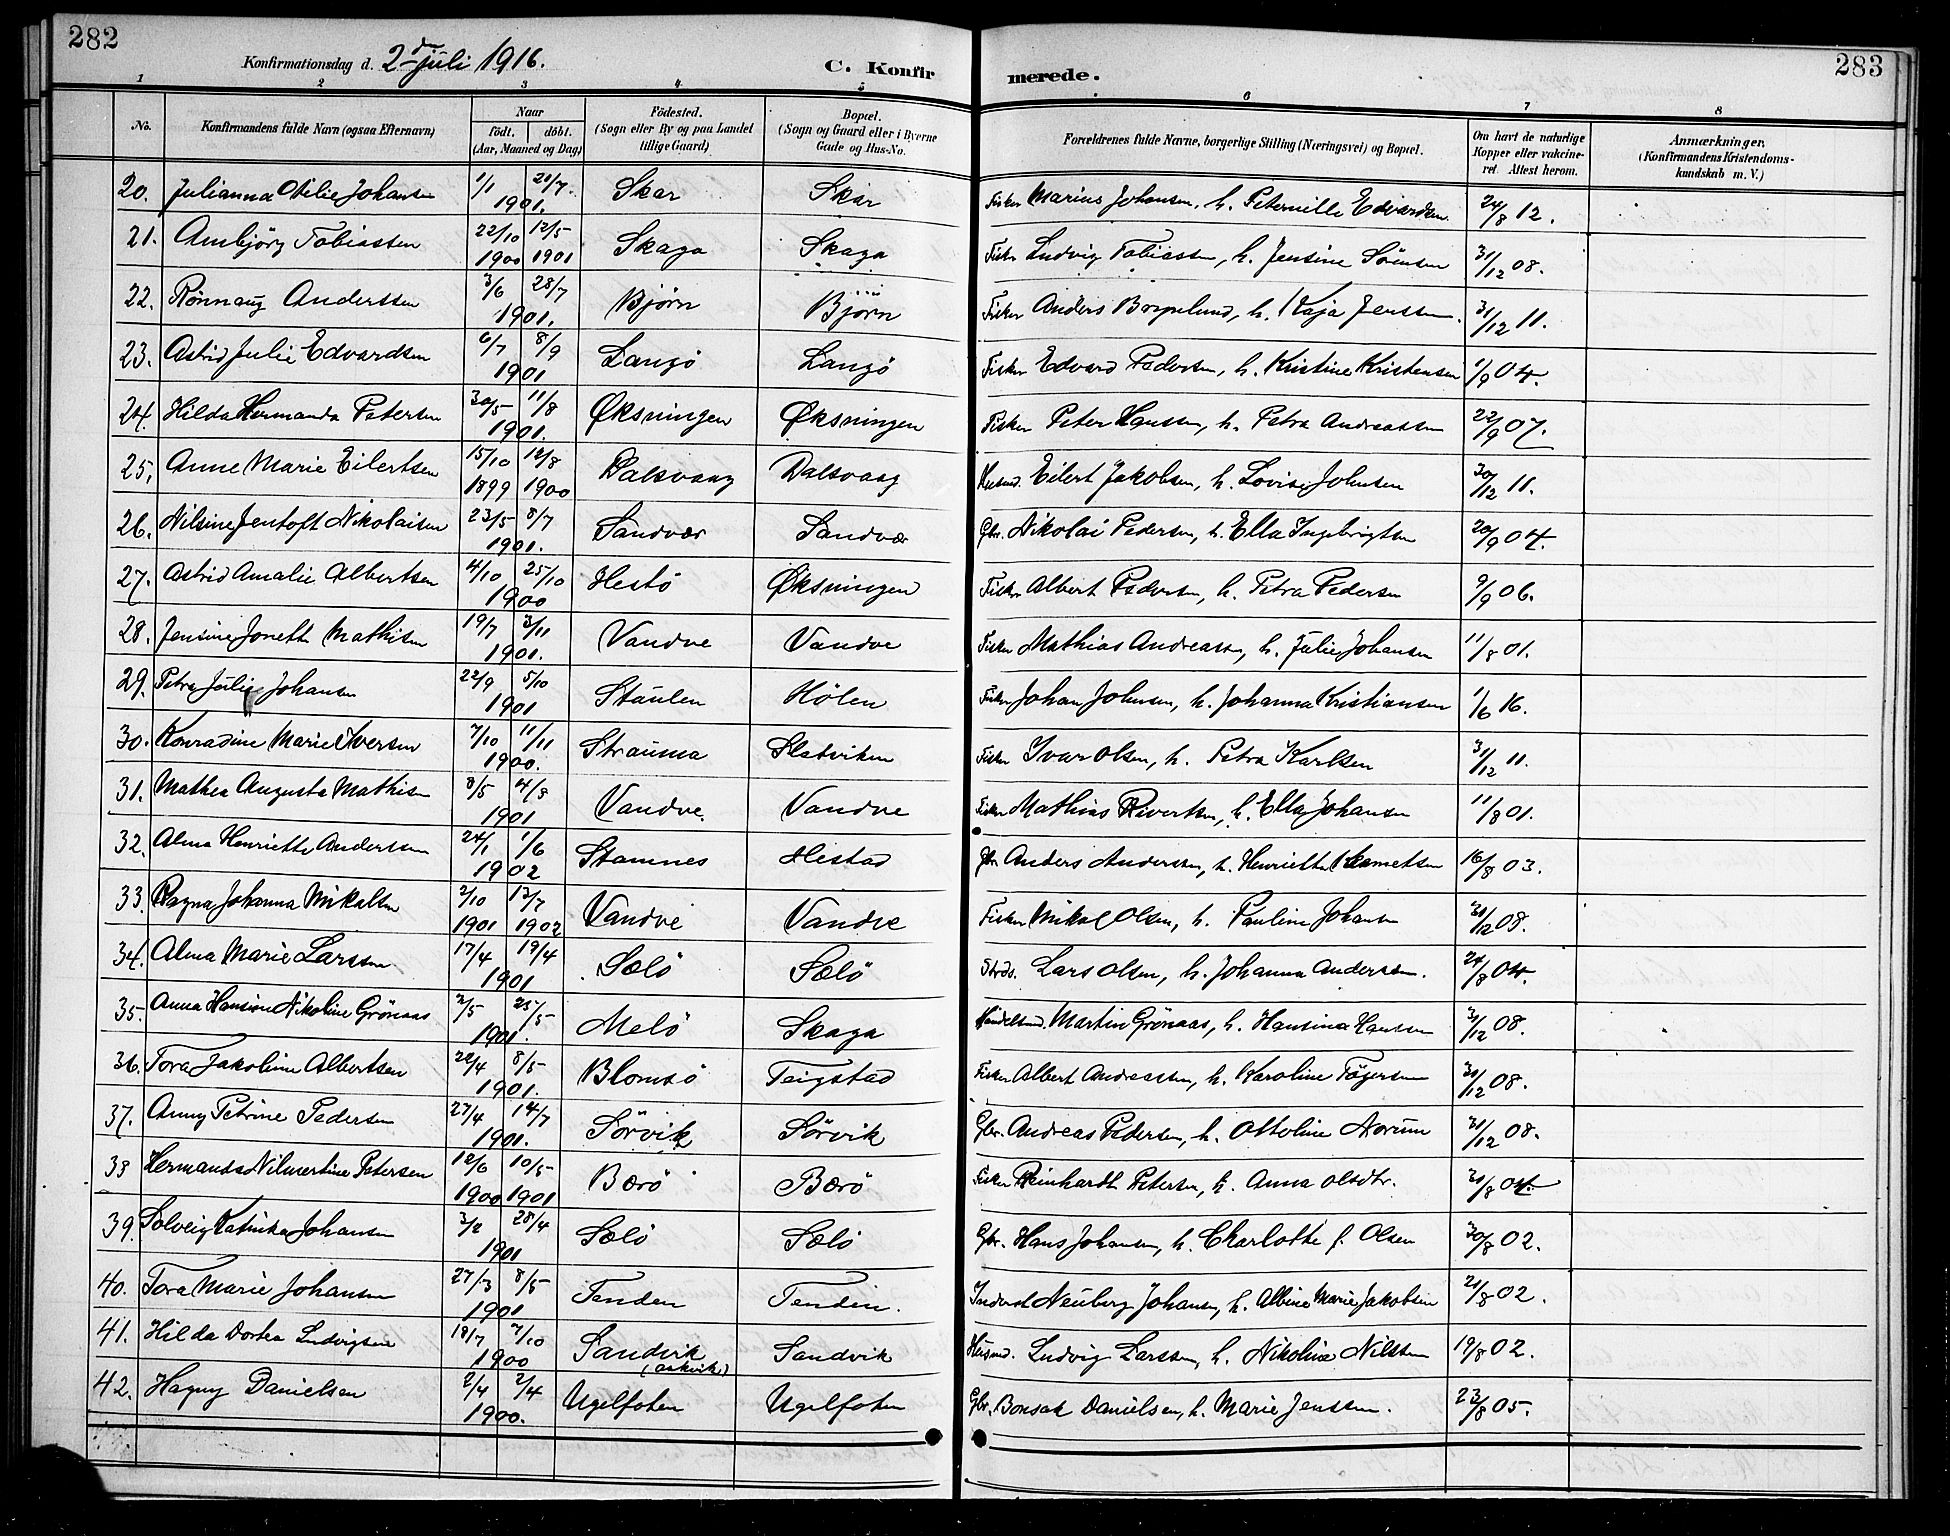 282
Konfirmationsdag d. 2den juli 1916.
C. Konfir
merede.
283
1 2 3 4 5 6 7 8
No.
Konfirmandens fulde Navn (ogsaa Efternavn)
Naar
født. døbt.
(Aar, Maaned og Dag)
Fødested.
(Sogn eller By og paa Landet
tillige Gaard)
Bopæl.
(Sogn og Gaard eller i Byerne
Gade og Hus-No.
Forældrenes fulde Navne, borgerlige Stilling (Næringsvei) og Bopæl.
Om havt de naturlige
Kopper eller vakcine-
ret. Attest herom.
Anmærkninger.
(Konfirmandens Kristendoms-
kundskab m. V.)
20. Julianna Otilie Johansen 1/1 21/7. 1901. Skar Skar Fisker Marius Johansen, h. Peternille Edvardsen. 24/8 12.
21. Ambjörg Tobiassen 22/10 1900 12/5 1901 Skaga Skaga Fisker Ludvig Tobiassen, h. Jensine Sörensen 31/12 08.
22. Rönnaug Anderssen 3/6 28/7 1901. Björn Björn Fisker Anders Borgelund, h. Kaja Jenssen. 31/12 11.
23. Astrid Julie Edvardsen 6/7 8/9 1901 Langö Langö Fisker Edvard Pedersen, h. Kristine Kristensen 1/9 04.
24. Hilda Hermanda Petersen 30/5 11/8 1901. Øksningen Øksningen Fisker Peter Hanssen, h. Petra Andreassen 22/9 07.
25. Anne Marie Eilertsen 15/10 1899 12/8 1900 Dalsvaag Dalsvaag Husmd. Eilert Jakobsen, h. Lovise Johnsen 30/12 11.
26. Nilsine Jentoft Nikolaisen 23/5 8/7 1901. Sandvær Sandvær Gbr. Nikolai Pedersen, h. Ella Ingebrigtsen 20/9 04.
27. Astrid Amalie Albertsen 4/10 25/10 1900 Hestö Øksningen Fisker Albert Pedersen, h. Petra Pedersen 9/9 06.
28. Jensine Jonette Mathisen 19/7 3/11 1901. Vandve Vandve Fisker Mathias Andreassen, h. Julie Johansen 11/8 01.
29. Petra Julie Johansen 22/9 5/10 1901 Staulen Hølen Fisker Johan Johnsen, h. Johanna Kristiansen 1/6 16.
30. Konradine Marie Iversen 7/10 11/11 1900. Strauma Slatviken Fisker Ivar Olsen, h. Petra Karlsen 31/12 11.
31. Mathea Augusta Mathisen 8/5 4/8 1901 Vandve. Vandve Fisker Mathias Sivertsen, h. Ella Johansen 11/8 01.
32. Alma Henriette Anderssen 24/1 1/6 1902 Stamnes Hestad Gbr. Anders Anderssen, h. Henriette Klemetsen 16/8 03.
33. Ragna Johanna Mikalsen 2/10 1901 13/7 1902 Vandve Vandve Fisker Mikal Olsen, h. Pauline Johansen 31/12 08.
34. Alma Marie Larssen 17/4 19/4 1901 Sælö Sælö Lars Olsen, h. Johanna Anderssen. 24/8 04.
35. Anna Hansine Nikoline Grönaas 2/5 25/5 1901. Melö Skaga Handelsmd. Martin Grönaas, h. Hansina Hanssen 31/12 08.
36. Tora Jakobine Albertsen 22/4 8/5 1901. Blomsö Teigstad Fisker Albert Andreassen, h. Karoline Tögersen 31/12 08.
37. Anny Petrine Pedersen 27/4 14/7 1901. Sörvik Sörvik Gbr. Andreas Pedersen, h. Ottoline Norum 31/12 08.
38 Hermanda Nilmertine Petersen 12/6 1900 10/5 1901 Bærö Bærö Fisker Reinhardt Petersen, h. Anna Olsdtr. 31/8 04.
39. Solveig Katinka Johansen 3/2 28/4 1901 Sælö Sælö Gbr. Hans Johansen, h. Charlotte f. Olsen 30/8 02.
40. Tora Marie Johansen 27/3 8/5 1901 Tenden Tenden. Inderst Neuberg Johansen, h. Albine Marie Jakobsen 21/8 02.
41. Hilda Dortea Ludvigsen 18/7 7/10 1900 Sandvik (Askvik) Sandvik Husmd. Ludvig Larssen, h. Nikoline Nilssen 19/8 02.
42. Hagny Danielsen 2/4 2/4 1900. Ugelfoten Ugelfoten Gbr. Bonsak Danielsen, h. Marie Jenssen. 23/8 05.